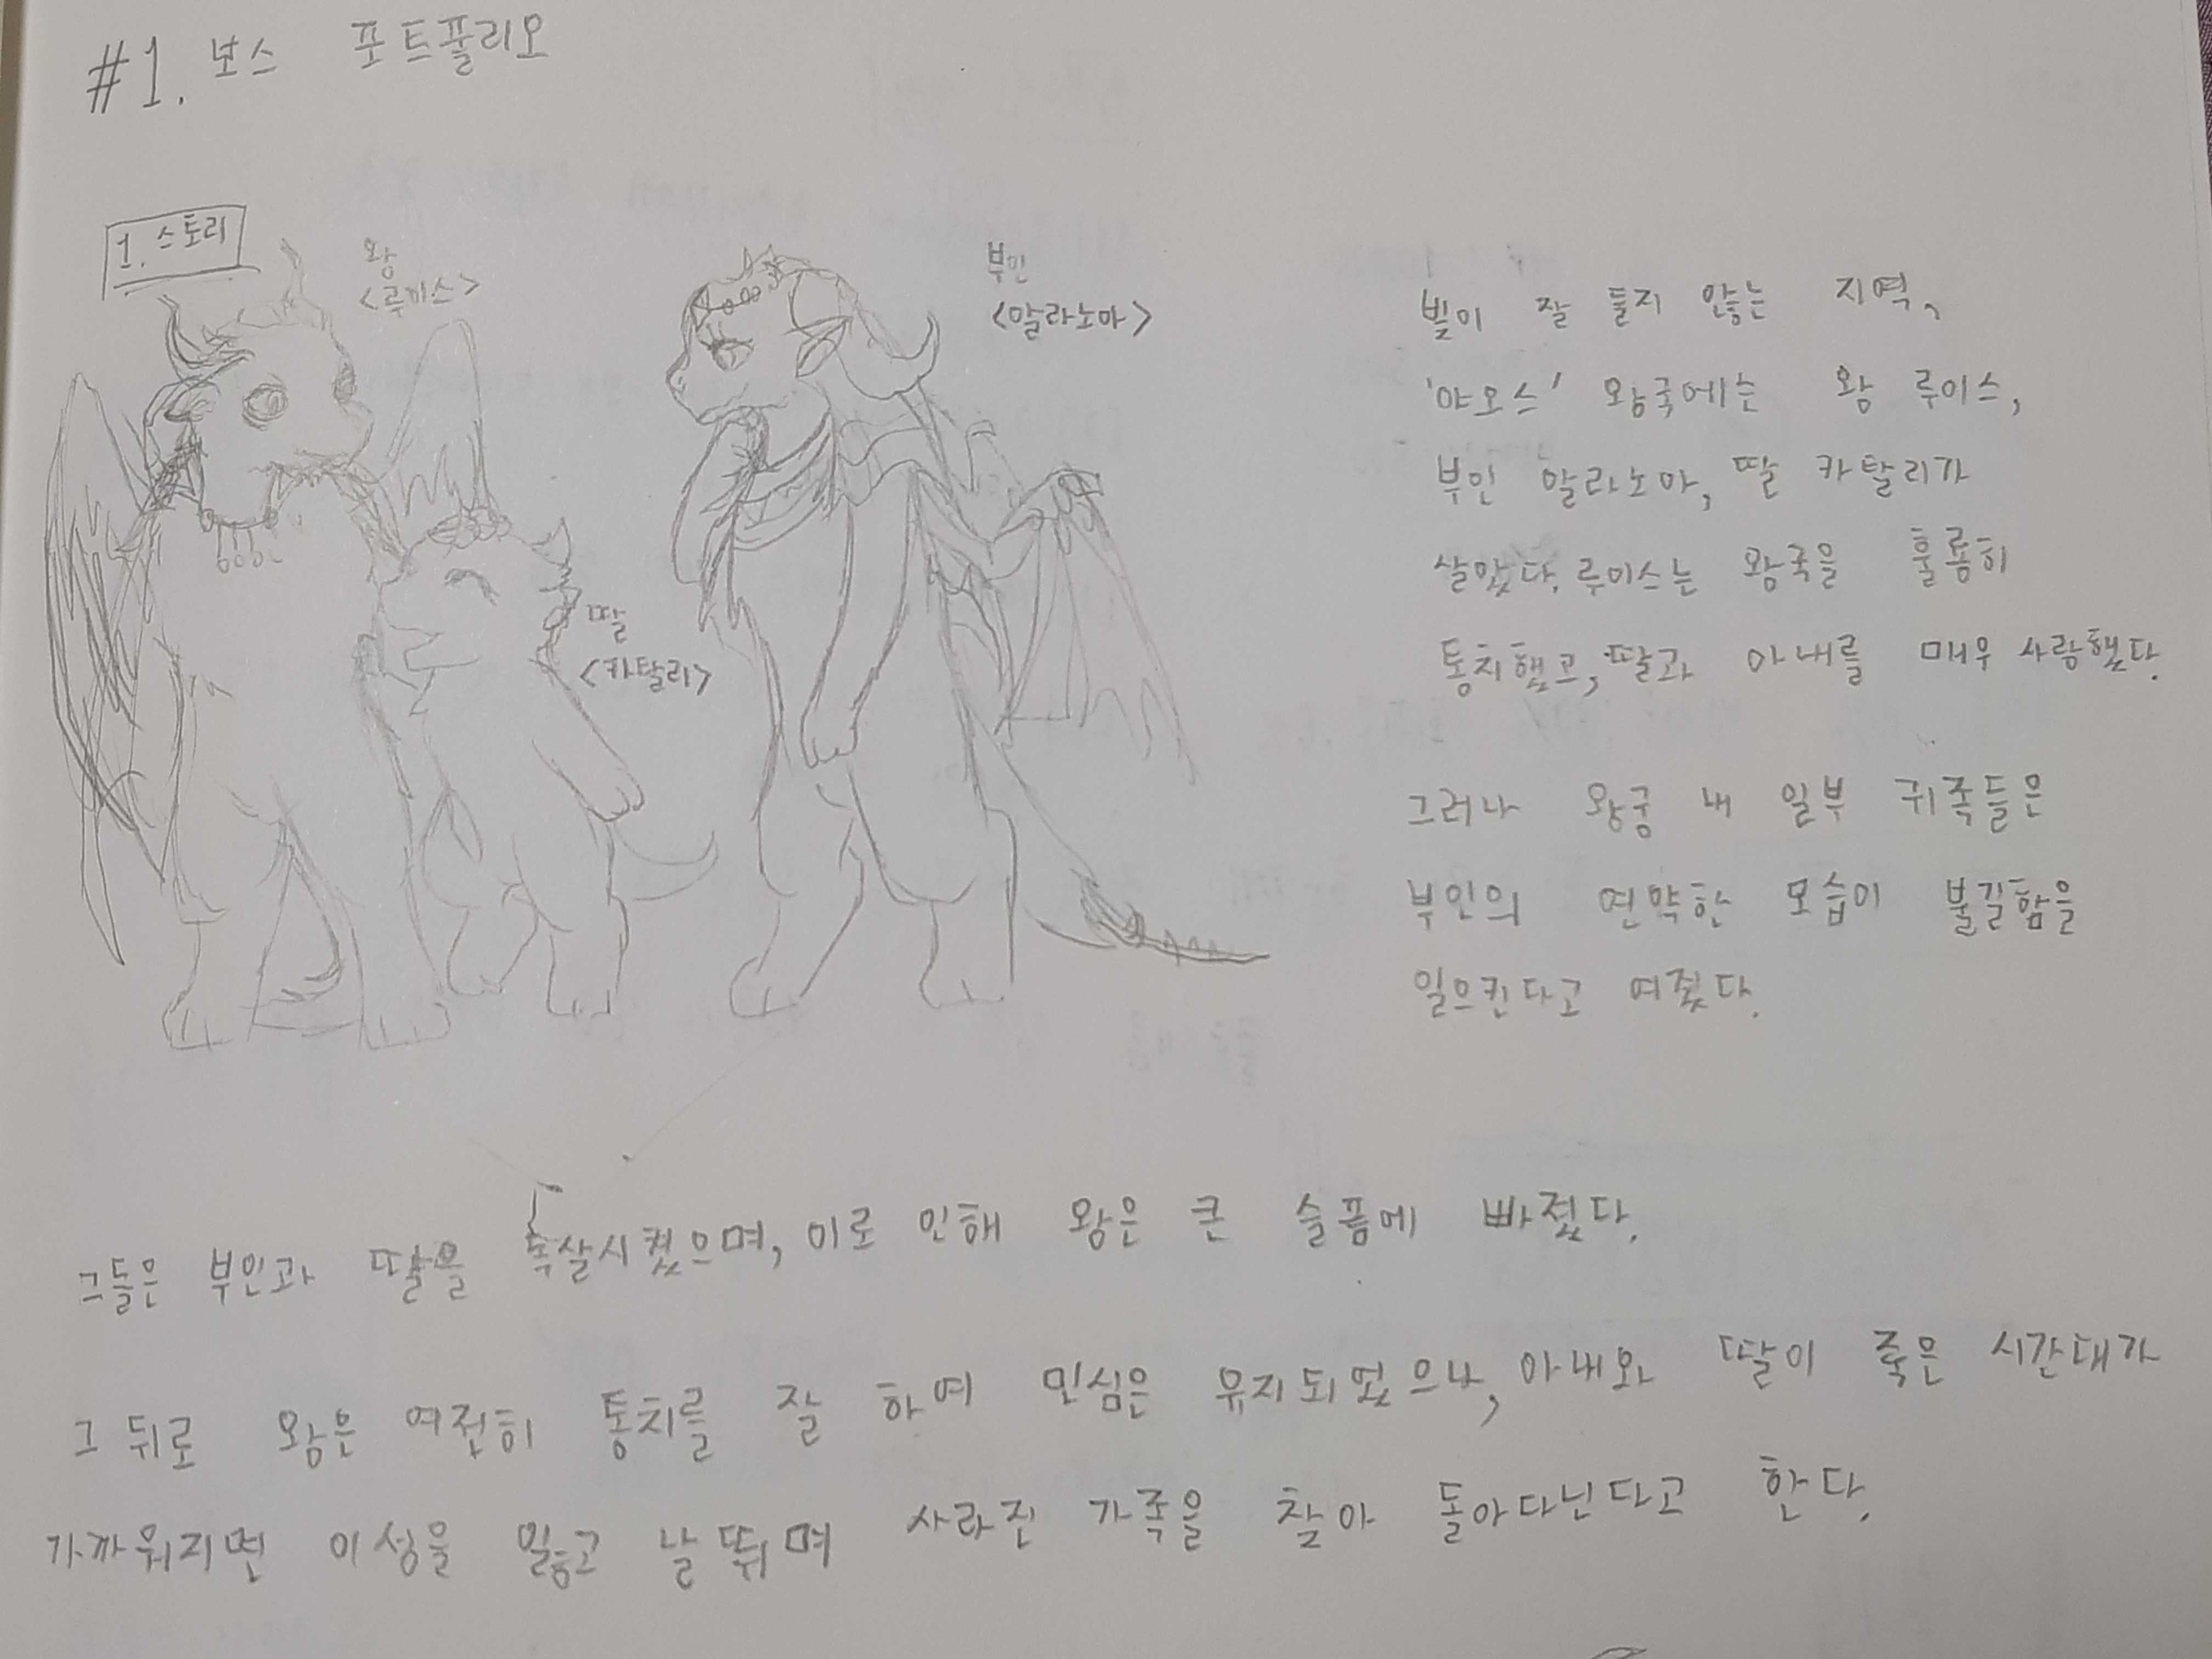 #1. 보스 포트폴리오
1. 스토리
왕
<루이스>
부인
<알라노아>
딸
<카탈리>
빛이 잘 들지 않는 지역,
'야오스' 왕국에는 왕 루이스,
부인 알라노아, 딸 카탈리가
살았다. 루이스는 왕국을 훌륭히
통치했고, 딸과 아내를 매우 사랑했다.
그러나 왕궁 내 일부 귀족들은
부인의 연약한 모습이 불길함을
일으킨다고 여겼다.
그들은 부인과 딸을 독살시켰으며, 이로 인해 왕은 큰 슬픔에 빠졌다.
그 뒤로 왕은 여전히 통치를 잘 하여 민심은 유지되었으나, 아내와 딸이 죽은 시간대가
가까워지면 이성을 잃고 날뛰며 사라진 가족을 찾아 돌아다닌다고 한다.